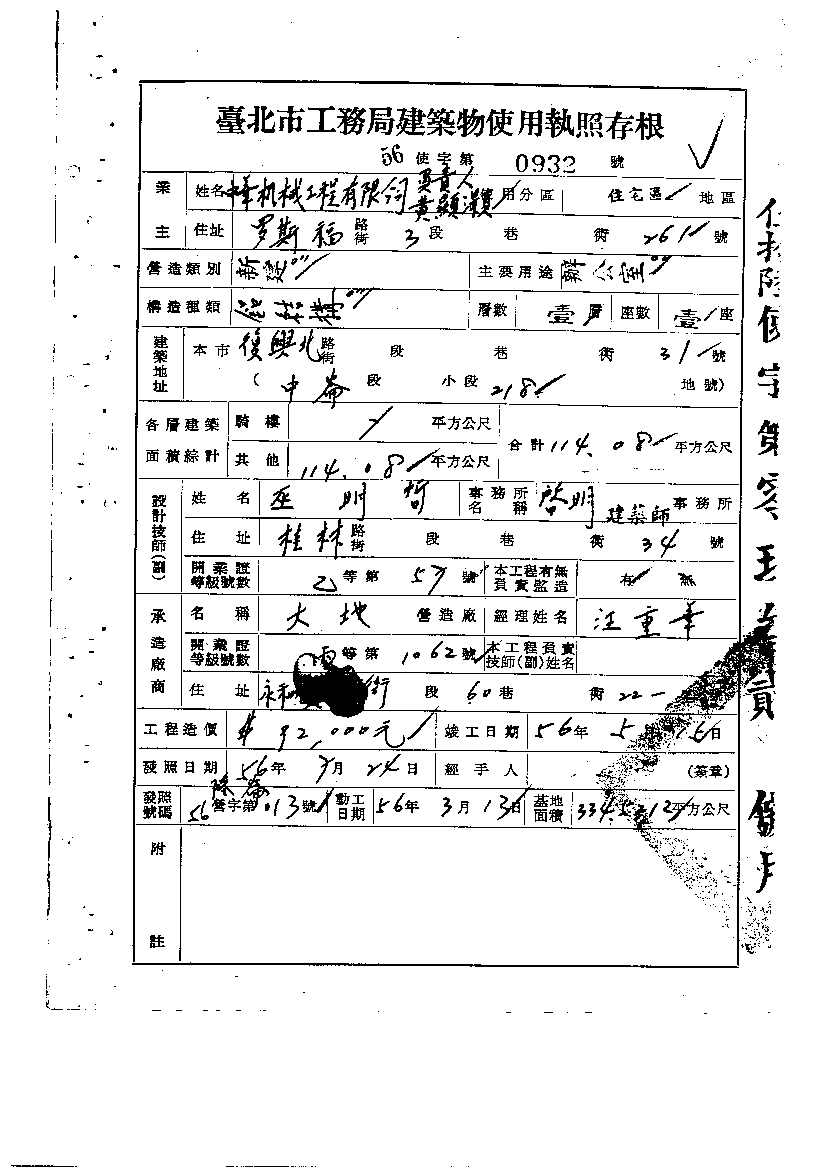 臺北市工務局建築物使用執照存根
56 使字第 0932 號
業主 姓名 中華机械工程有限公司 負責人 黃顯灝 用分區 住宅區 地區
住址 罗斯福 路街 3 段 巷 街 261 號
營造類別 新建 主要用途 辦公室
構造種類 層數 壹層 座數 壹座
建築地址 本市 復興北 路街 段 巷 街 31 號
(中崙 段 小段 218 地號)
各層建築面積綜計 騎樓 平方公尺 合計 114.08 平方公尺
其他 114.08 平方公尺
設計技師(副) 姓名 巫明哲 事務所名稱 啓明建築師 事務所
住址 桂林 路街 段 巷 街 34 號
開業證等級號數 乙等第 57 號 本工程有無負責監造 有 無
承造廠商 名稱 大地 營造廠 經理姓名 汪重華
開業證等級號數 丙等第 1062 號 本工程負責技師(副)姓名
住址 永和 街 段 60 巷 街 22-
工程造價 $92,000元 竣工日期 56年 5月 15日
發照日期 56年 7月 24日 經手人 (簽章)
發照號碼 56 營字第 013 號 動工日期 56年 3月 13日 基地面積 平方公尺
附註